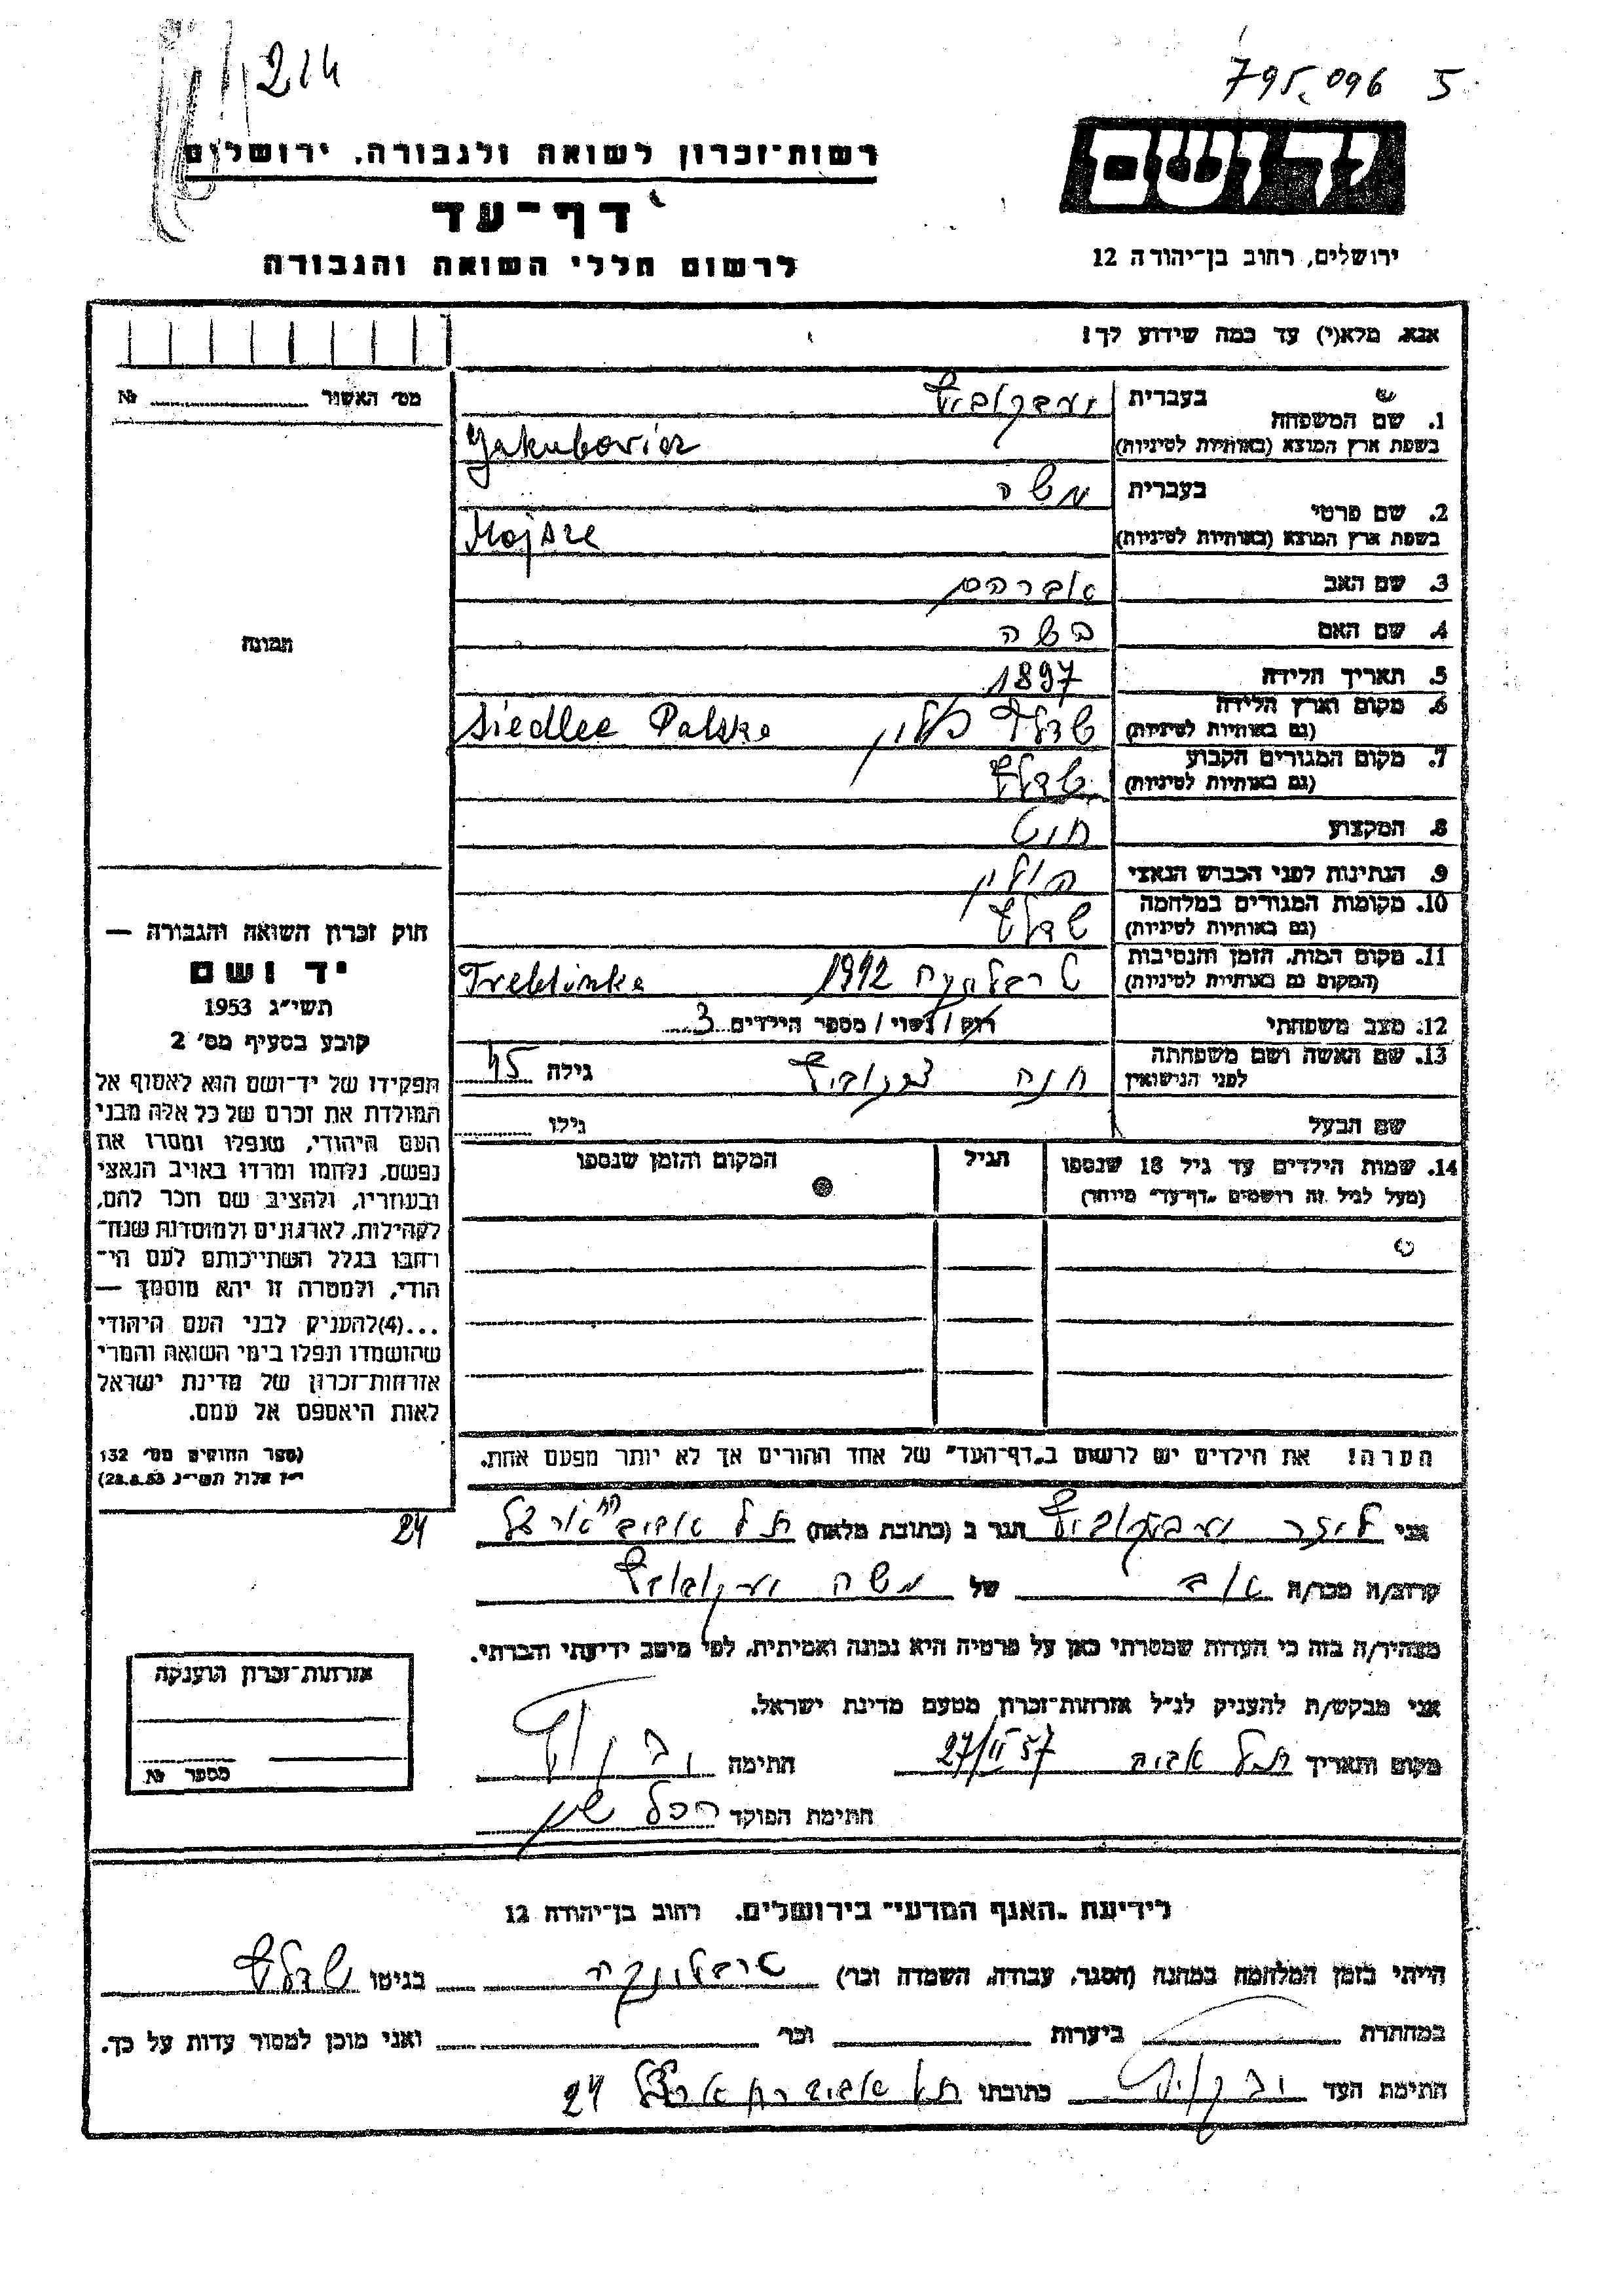 214
795.096 5
רשות־זכרון לשואה ולגבורה. ירושלים
יד ושם
דף־עד
לרשום חללי השואה והגבורה
ירושלים, רחוב בן־יהודה 12
אנא, מלא(י) עד כמה שידוע לך!
מס׳ האשור № 
1. שם המשפחה בעברית
בשפת ארץ המוצא (באותיות לטיניות) Jakubovicz
2. שם פרטי בעברית משה
בשפת ארץ המוצא (באותיות לטיניות) Mojsze
3. שם האב אברהם
4. שם האם בשה
5. תאריך הלידה 1897
6. מקום וארץ הלידה (גם באותיות לטיניות) שדלץ פולין Siedlce Polska
7. מקום המגורים הקבוע (גם באותיות לטיניות) שדלץ
8. המקצוע חיט
9. הנתינות לפני הכבוש הנאצי פולין
10. מקומות המגורים במלחמה (גם באותיות לטיניות) שדלץ
11. מקום המות, הזמן והנסיבות (המקום גם באותיות לטיניות) 1942 Treblinka
12. מצב משפחתי רוק / נשוי / מספר הילדים 3
13. שם האשה ושם משפחתה לפני הנישואין חנה גילה 45
שם הבעל גילו
14. שמות הילדים עד גיל 18 שנספו
(מעל לגיל זה רושמים „דף־עד״ מיוחד)
הגיל
המקום והזמן שנספו
הערה! את הילדים יש לרשום ב„דף־העד״ של אחד ההורים אך לא יותר מפעם אחת.
תמונה
חוק זכרון השואה והגבורה —
יד ושם
תשי״ג 1953
קובע בסעיף מס׳ 2
תפקידו של יד־ושם הוא לאסוף אל
המולדת את זכרם של כל אלה מבני
העם היהודי, שנפלו ומסרו את
נפשם, נלחמו ומרדו באויב הנאצי
ובעוזריו, ולהציב שם וזכר להם,
לקהילות, לארגונים ולמוסדות שנח־
רבו בגלל השתייכותם לעם הי־
הודי, ולמטרה זו יהא מוסמך —
...(4)להעניק לבני העם היהודי
שהושמדו ונפלו בימי השואה והמרי
אזרחות־זכרון של מדינת ישראל
לאות היאספם אל עמם.
(ספר החוקים מס׳ 132
י״ז אלול תשי״ג 28.8.53)
אני הגר ב (כתובת מלאה) תל אביב 24
קרוב/ה מכר/ה של משה
מצהיר/ה בזה כי העדות שמסרתי כאן על פרטיה היא נכונה ואמיתית, לפי מיטב ידיעתי והכרתי.
אני מבקש/ת להעניק לנ״ל אזרחות־זכרון מטעם מדינת ישראל.
מקום ותאריך תל אביב 27/II 57 חתימה
חתימת הפוקד
אזרחות־זכרון הוענקה
מספר №
לידיעת „האגף המדעי״ בירושלים. רחוב בן־יהודה 12
הייתי בזמן המלחמה במחנה (הסגר, עבודה, השמדה וכו׳) טרבלינקה בגיטו שדלץ
במחתרת ביערות וכו׳ ואני מוכן למסור עדות על כך.
חתימת העד כתובתו תל אביב 24